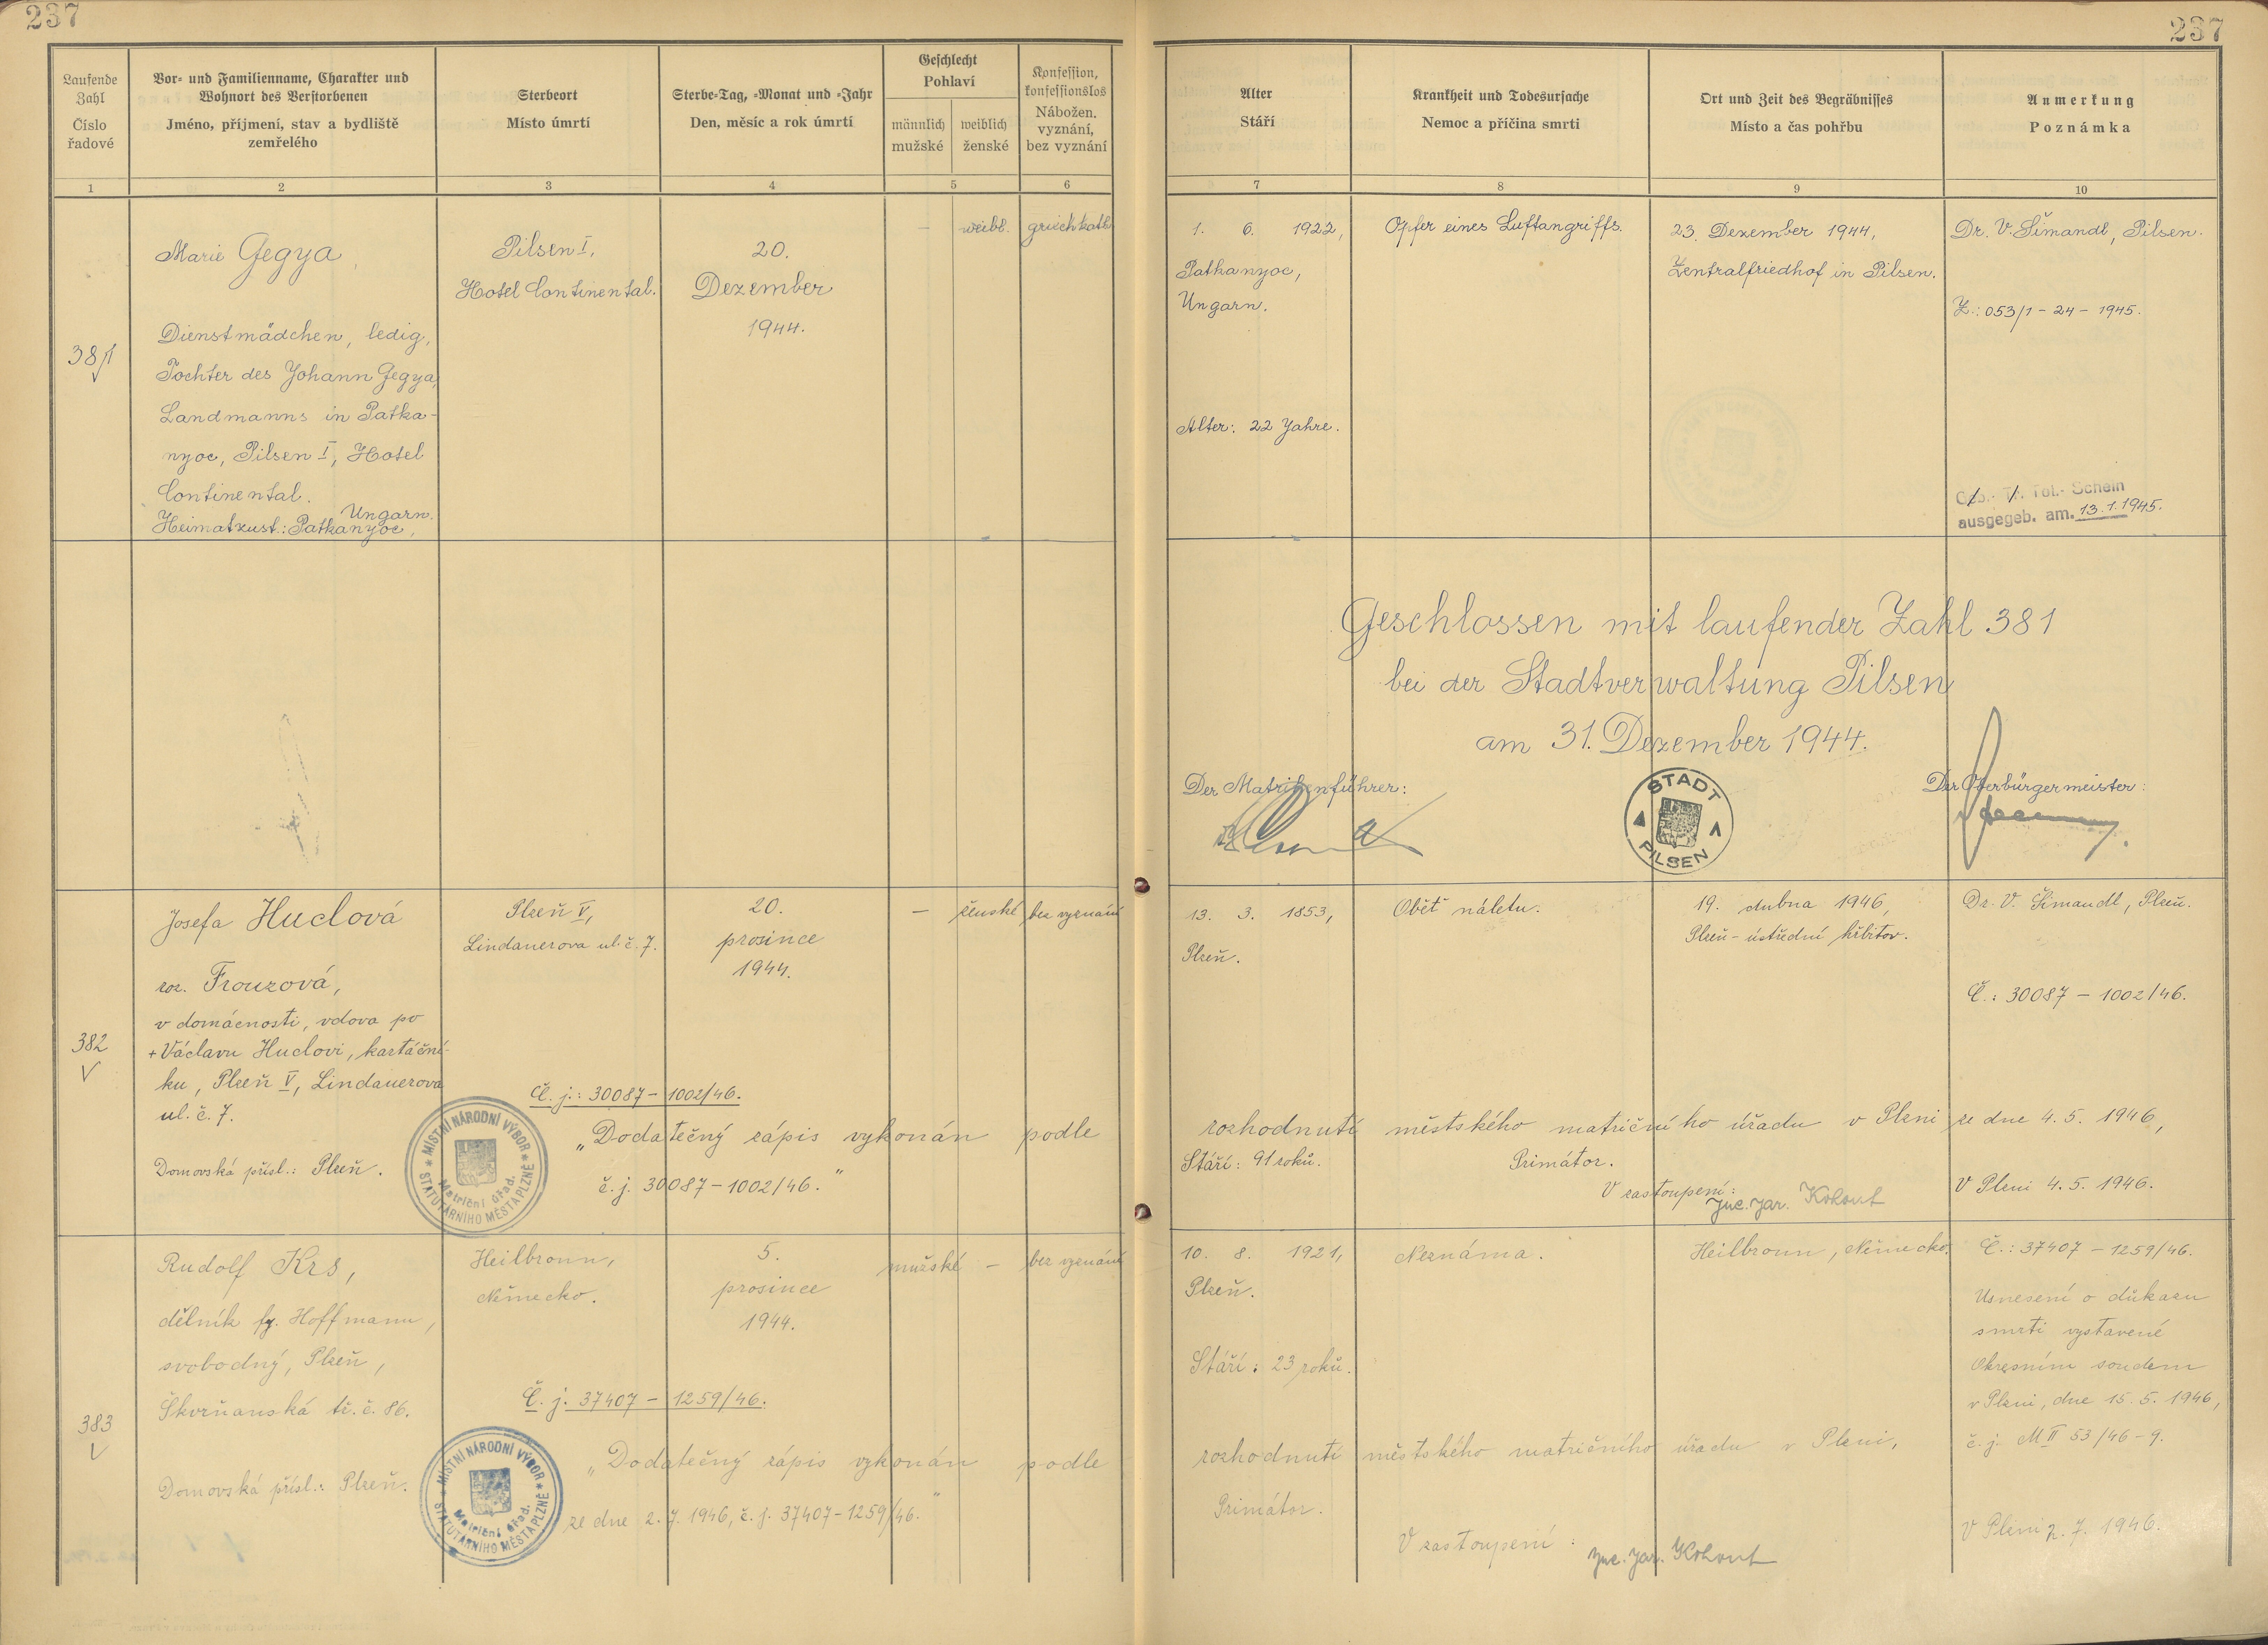 237
237
Laufende
Zahl
Číslo
řadové
Vor- und Familienname, Charakter und
Wohnort des Verstorbenen
Jméno, příjmení, stav a bydliště
zemřelého
Sterbeort
Místo úmrtí
Sterbe-Tag, -Monat und -Jahr
Den, měsíc a rok úmrtí
Geschlecht
Pohlaví
männlich
mužské
weiblich
ženské
Konfession,
konfessionslos
Nábožen.
vyznání,
bez vyznání
Alter
Stáří
Krankheit und Todesursache
Nemoc a příčina smrti
Ort und Zeit des Begräbnisses
Místo a čas pohřbu
Anmerkung
Poznámka
1
2
3
4
5
6
7
8
9
10
381
Marie Gegya,
Dienstmädchen, ledig,
Tochter des Johann Gegya,
Landmanns in Patka-
nyoc, Pilsen I, Hotel
Continental.
Ungarn.
Heimatzust.: Patkanyoc,
Pilsen I,
Hotel Continental.
20.
Dezember
1944.
—
weibl.
griech.kath.
1. 6. 1922,
Patkanyoc,
Ungarn.
Alter: 22 Jahre.
Opfer eines Luftangriffs.
23. Dezember 1944,
Zentralfriedhof in Pilsen.
Dr. V. Šimandl, Pilsen.
Z.: 053/1 - 24 - 1945.
Geb.- Tr. Tot.- Schein
ausgegeb. am. 13.1.1945.
Geschlossen mit laufender Zahl 381
bei der Stadtverwaltung Pilsen
am 31. Dezember 1944.
Der Matrikenführer:
STADT
PILSEN
Der Oberbürgermeister:
382
Josefa Huclová
roz. Frouzová,
v domácnosti, vdova po
+ Václavu Huclovi, kartáční-
ku, Plzeň V, Lindauerova
ul. č. 7.
Domovská přísl.: Plzeň.
Plzeň V,
Lindauerova ul. č. 7.
20.
prosince
1944.
—
ženské
bez vyznání
13. 3. 1853,
Plzeň.
Stáří: 91 roků.
Oběť náletu.
19. dubna 1946,
Plzeň - ústřední hřbitov.
Dr. V. Šimandl, Plzeň.
Č.: 30087 - 1002/46.
Č. j.: 30087 - 1002/46.
„Dodatečný zápis vykonán podle rozhodnutí městského matričního úřadu v Plzni ze dne 4. 5. 1946,
č. j. 30087 - 1002/46.“
MÍSTNÍ NÁRODNÍ VÝBOR
STATUTÁRNÍHO MĚSTA PLZNĚ
Matriční úřad.
Primátor.
V zastoupení:
Jar. Kohout
V Plzni 4. 5. 1946.
383
Rudolf Krs,
dělník fy. Hoffmann,
svobodný, Plzeň,
Škvrňanská tř. č. 86.
Domovská přísl.: Plzeň.
Heilbronn,
Německo.
5.
prosince
1944.
mužské
—
bez vyznání
10. 8. 1921,
Plzeň.
Stáří: 23 roků.
Neznáma.
Heilbronn, Německo.
Č.: 37407 - 1259/46.
Usnesení o důkazu
smrti vystavené
Okresním soudem
v Plzni, dne 15. 5. 1946,
č. j. M II 53/46 - 9.
Č. j. 37407 - 1259/46.
„Dodatečný zápis vykonán podle rozhodnutí městského matričního úřadu v Plzni,
ze dne 2. 7. 1946, č. j. 37407 - 1259/46.“
MÍSTNÍ NÁRODNÍ VÝBOR
STATUTÁRNÍHO MĚSTA PLZNĚ
Matriční úřad.
Primátor.
V zastoupení:
Jar. Kohout
V Plzni 2. 7. 1946.